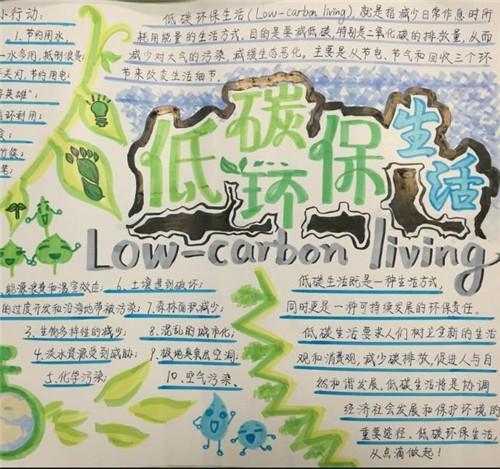 小行动：
1.节约用水，
一水多用，抵制浪费；
走灯，节约用电；
英雄"；
循环利用；
低碳环保生活(Low-carbon living)，就是指减少日常作息时所
耗用能量的生活方式，目的是要减低碳，特别是二氧化碳的排放量，从而
减少对大气的污染，减缓生态恶化。主要是从节电、节气和回收三个环
节来改变生活细节。
低碳环保生活
Low-carbon living
能源浪费和温室效应；
的过度开发和沿海地带被污染；
3.生物多样性的减少；
4.淡水资源受到威胁；
5.化学污染；
6.土壤遭到破坏；
7.森林面积减少；
8.混乱的城市化；
9.极地臭氧层空洞；
10.空气污染、
低碳生活既是一种生活方式，
同时更是一种可持续发展的环保责任。
低碳生活要求人们树立全新的生活
观和消费观，减少碳排放，促进人与自
然和谐发展。低碳生活将是协调
经济社会发展和保护环境的
重要途径。低碳环保生活，
从点滴做起！